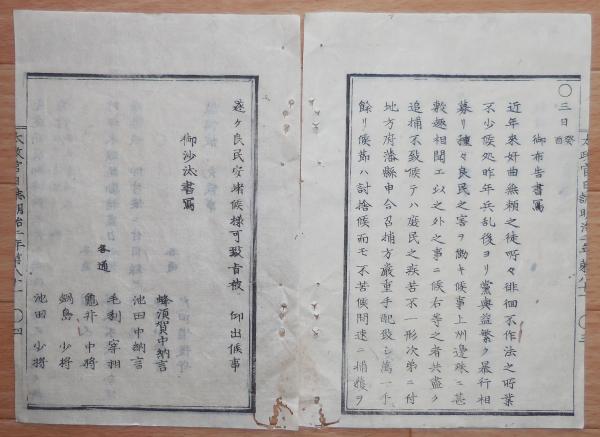 〇三日 癸酉
御布告書寫
近年來奸曲無頼之徒所々徘徊不作法之所業
不少候処昨年兵乱後ヨリ黨與益繁ク暴行相
募リ種々良民之害ヲ働キ候事上州邊殊ニ甚
敷趣相聞エ以之外之事ニ候右等之者共盡ク
追捕不致候テハ庶民之疾苦不一形次第ニ付
地方府藩縣申合召捕方嚴重手配致シ萬一手
餘リ候節ハ討捨候而モ不苦候間速ニ捕獲ヲ
太政官日誌明治二年第八十一 〇三
遂ケ良民安堵候様可致旨被 仰出候事
御沙汰書寫
蜂須賀中納言
池田中納言
毛利宰相
龜井中將
鍋島少將
池田少將
各通
太政官日誌明治二年第八十一 〇四